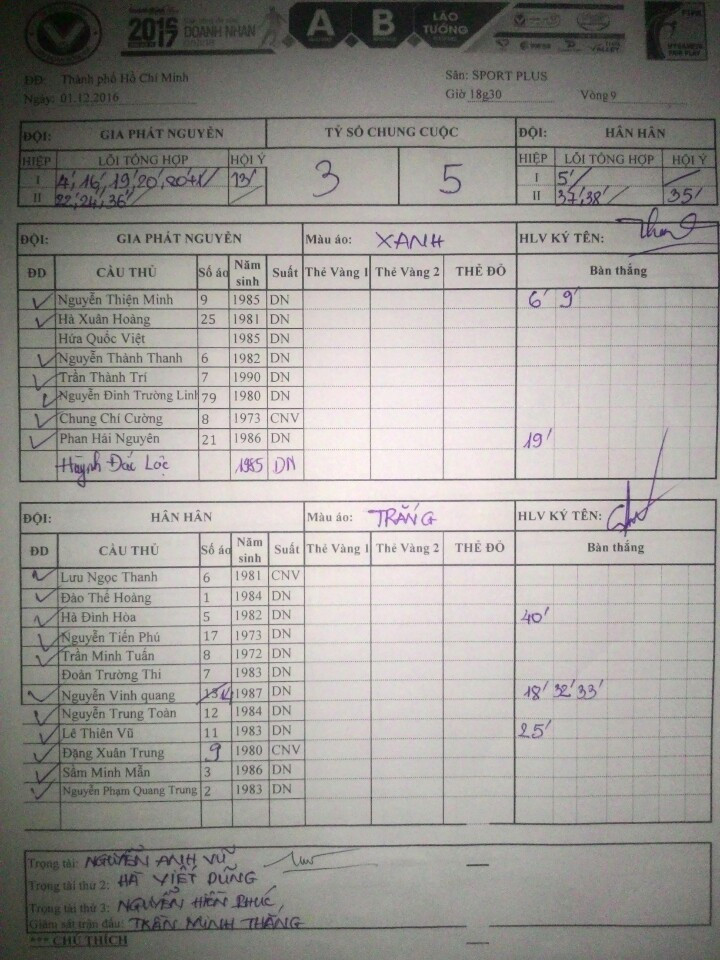 2016
2017 DOANH NHÂN
A B LÃO TƯỚNG
ĐĐ: Thành phố Hồ Chí Minh Sân: SPORT PLUS
Ngày: 01.12.2016 Giờ 18g30 Vòng 9
ĐỘI: GIA PHÁT NGUYÊN TỶ SỐ CHUNG CUỘC ĐỘI: HÂN HÂN
HIỆP LỖI TỔNG HỢP HỘI Ý 3 5 HIỆP LỖI TỔNG HỢP HỘI Ý
I 4', 16', 19', 20', 20+1' 13' I 5'
II 22', 24', 36' II 37', 38' 35'
ĐỘI: GIA PHÁT NGUYÊN Màu áo: XANH HLV KÝ TÊN:
ĐD CẦU THỦ Số áo Năm sinh Suất Thẻ Vàng 1 Thẻ Vàng 2 THẺ ĐỎ Bàn thắng
Nguyễn Thiện Minh 9 1985 DN 6' 9'
Hà Xuân Hoàng 25 1981 DN
Hứa Quốc Việt 1985 DN
Nguyễn Thành Thanh 6 1982 DN
Trần Thành Trí 7 1990 DN
Nguyễn Đình Trường Linh 79 1980 DN
Chung Chí Cường 8 1973 CNV
Phan Hải Nguyên 21 1986 DN 19'
Huỳnh Đắc Lộc 1985 DN
ĐỘI: HÂN HÂN Màu áo: TRẮNG HLV KÝ TÊN:
ĐD CẦU THỦ Số áo Năm sinh Suất Thẻ Vàng 1 Thẻ Vàng 2 THẺ ĐỎ Bàn thắng
Lưu Ngọc Thanh 6 1981 CNV
Đào Thế Hoàng 1 1984 DN
Hà Đình Hòa 5 1982 DN 40'
Nguyễn Tiến Phú 17 1973 DN
Trần Minh Tuấn 8 1972 DN
Đoàn Trường Thi 7 1983 DN
Nguyễn Vinh quang 14 1987 DN 18' 32' 33'
Nguyễn Trung Toàn 12 1984 DN
Lê Thiện Vũ 11 1983 DN 25'
Đặng Xuân Trung 9 1980 CNV
Sầm Minh Mẫn 3 1986 DN
Nguyễn Phạm Quang Trung 2 1983 DN
Trọng tài: NGUYỄN ANH VŨ
Trọng tài thứ 2: HÀ VIẾT DŨNG
Trọng tài thứ 3: NGUYỄN HIỀN PHÚC
Giám sát trận đấu: TRẦN MINH THĂNG
*** CHÚ THÍCH